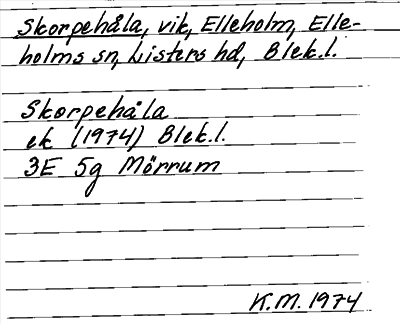 Skorpehåla, vik, Elleholm, Elle-
holms sn, Listers hd, Blek.l.
Skorpehåla
ek (1974) Blek.l.
3E 5g Mörrum
K.M. 1974